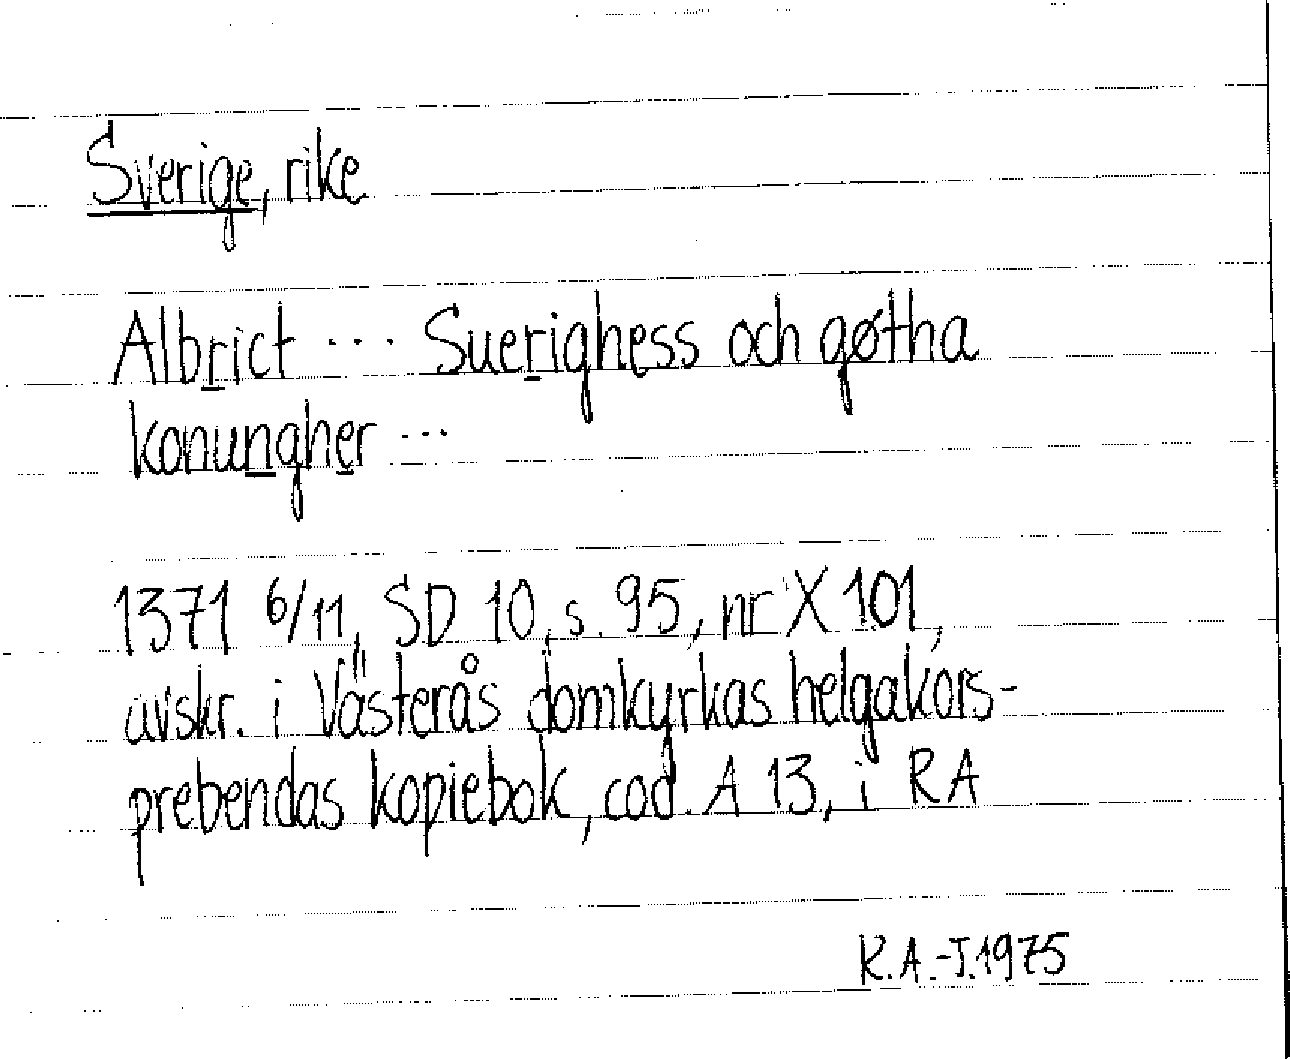 Sverige, rike
Albrict ... Suerighess och gøtha
konungher ...
1371 6/11, SD 10, s. 95, nr X 101,
avskr. i Västerås domkyrkas helgakors-
prebendas kopiebok, cod. A 13, i RA
K.A.-J.1975